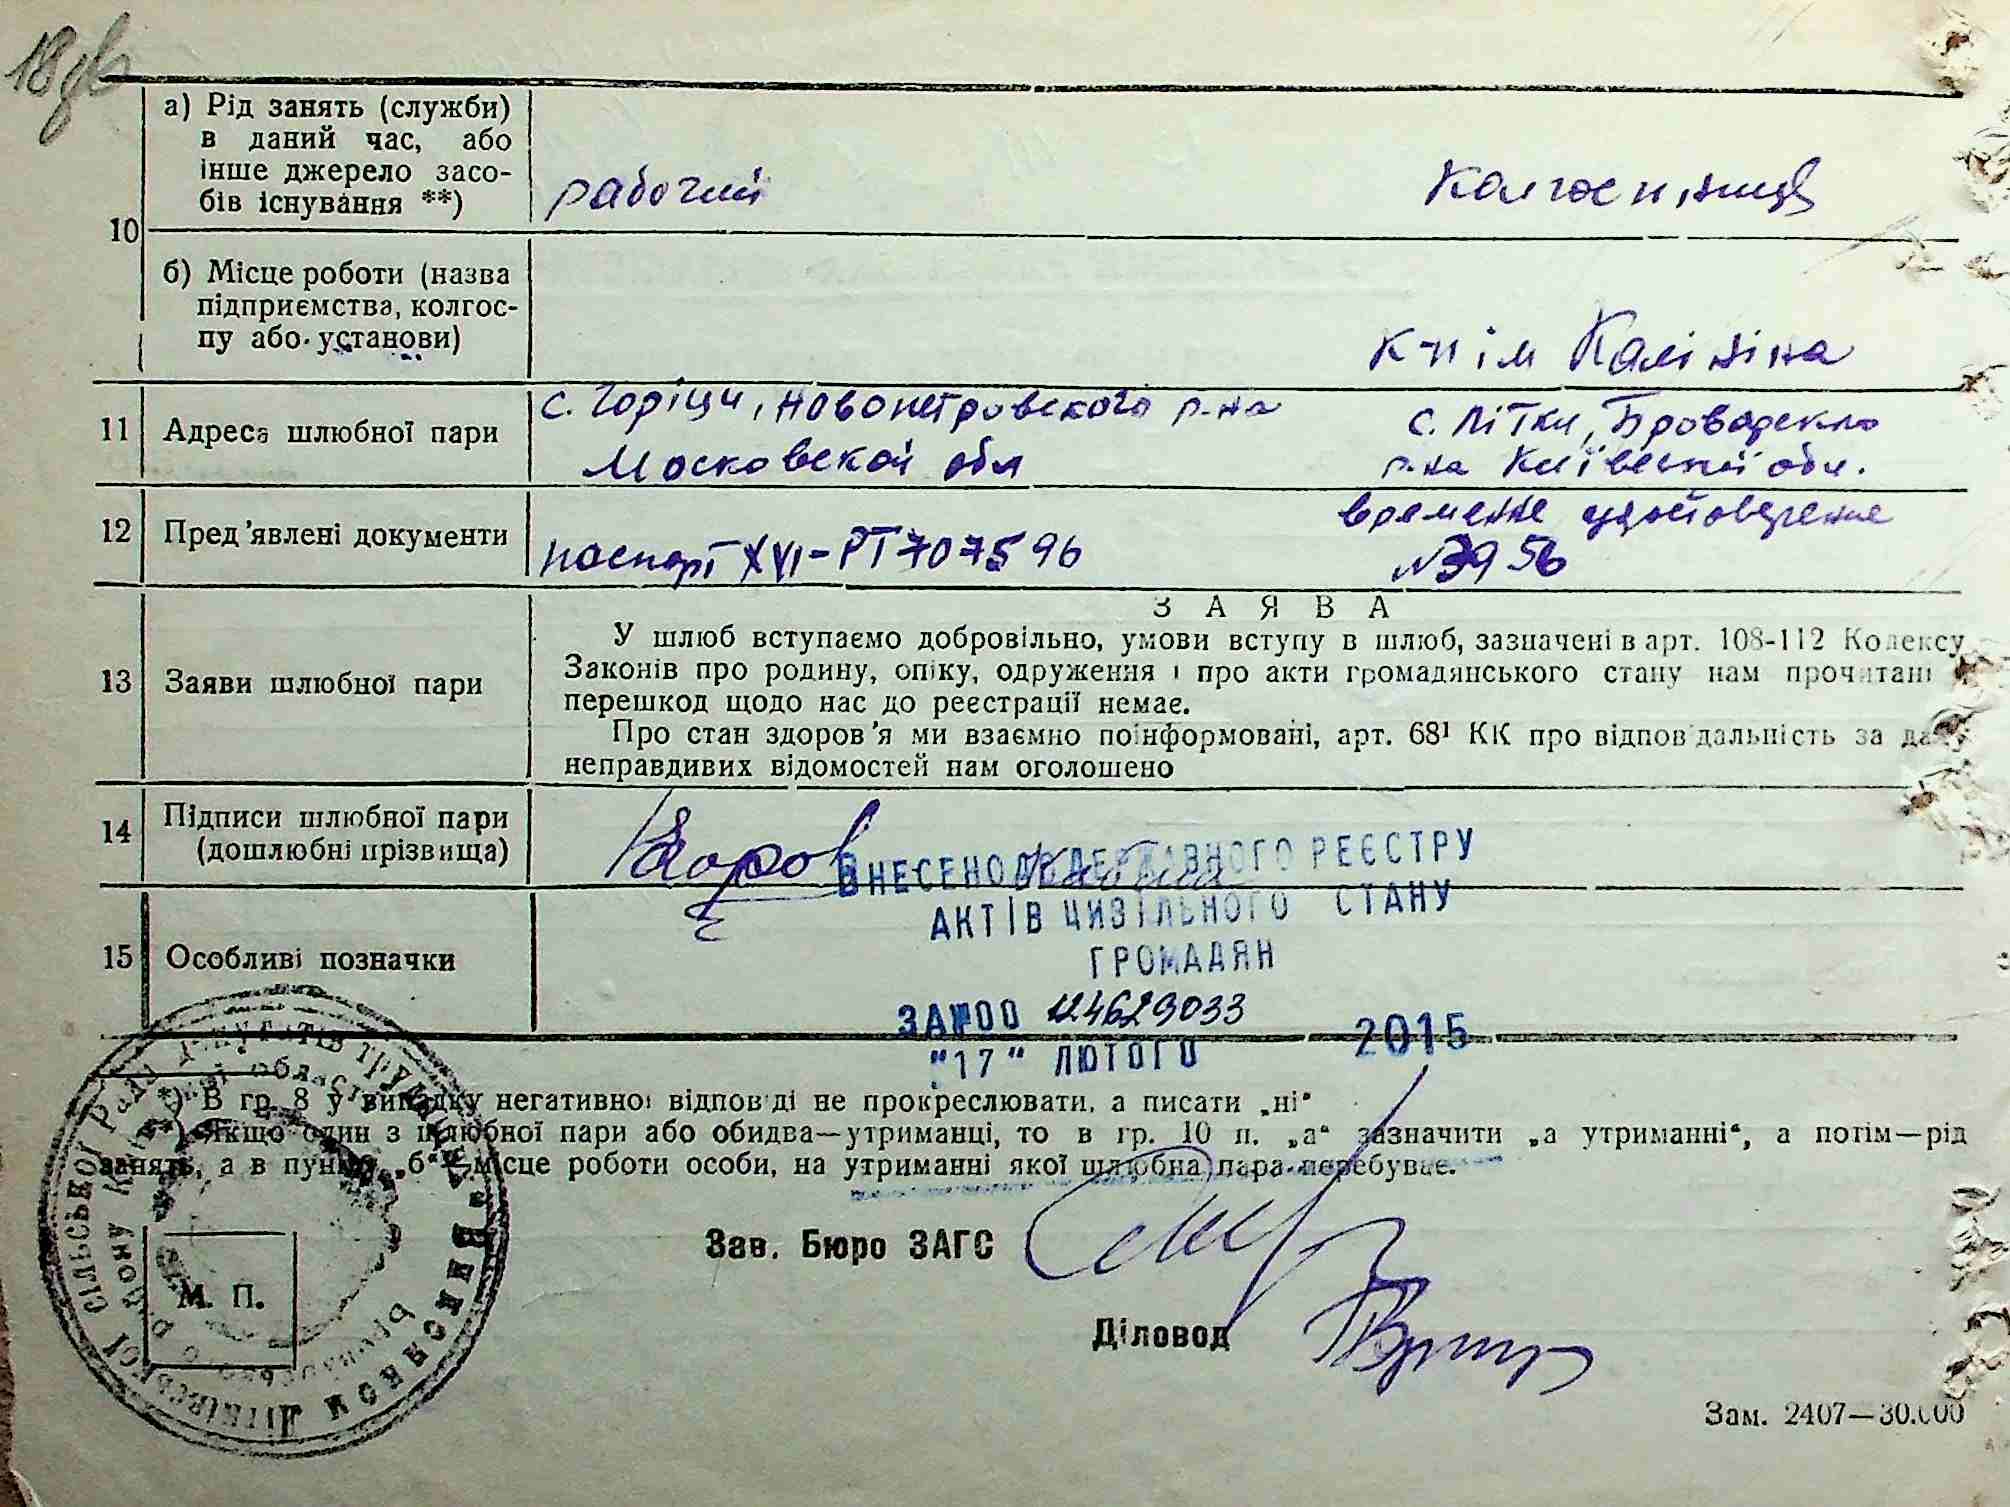 а) Рід занять (служби)
в даний час, або
інше джерело засо-
бів існування **)
рабочий
колгоспниця
10
б) Місце роботи (назва
підприємства, колгос-
пу або установи)
к-п ім Калініна
11
Адреса шлюбної пари
с. Горіци, Новопетровского р-на
Московской обл
с. Літки, Броварськ
р-на Київської обл.
12
Пред'явлені документи
паспорт XVI-РТ 707596
временне удостоверение
№ 3956
З А Я В А
13
Заяви шлюбної пари
У шлюб вступаємо добровільно, умови вступу в шлюб, зазначені в арт. 108-112 Кодексу
Законів про родину, опіку, одруження і про акти громадянського стану нам прочитані і
перешкод щодо нас до реєстрації немає.
Про стан здоров'я ми взаємно поінформовані, арт. 68¹ КК про відповідальність за дачу
неправдивих відомостей нам оголошено
14
Підписи шлюбної пари
(дошлюбні прізвища)
ВНЕСЕНО ДО ДЕРЖАВНОГО РЕЄСТРУ
АКТІВ ЦИВІЛЬНОГО СТАНУ
ГРОМАДЯН
15
Особливі позначки
ЗА №00 124629033
"17" ЛЮТОГО 2015
*) В гр. 8 у випадку негативної відповіді не прокреслювати, а писати „ні“
**) Якщо один з шлюбної пари або обидва—утриманці, то в гр. 10 п. „а“ зазначити „а утриманні“, а потім—рід
занять, а в пункті „б“—місце роботи особи, на утриманні якої шлюбна пара перебуває.
Зав. Бюро ЗАГС
М. П.
Діловод
Зам. 2407—30.000